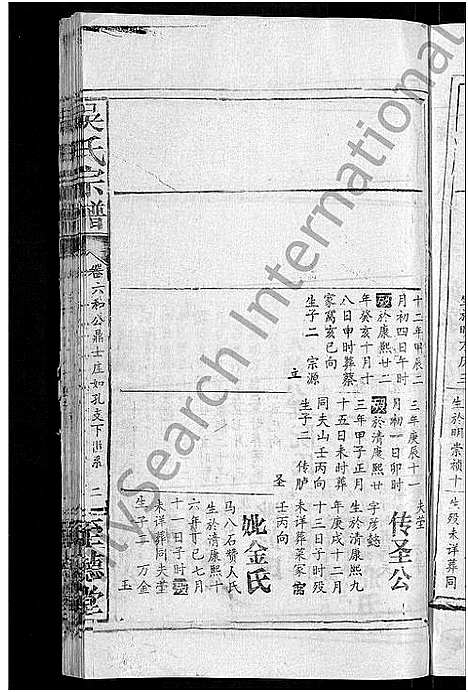 吳氏宗譜
卷六和公鼎士庄如孔支下世系
二
至德堂
十二年甲辰二
月初四日午时
殁於康熙廿二
年癸亥十月十
八日申时葬蔡
家窩亥巳向
生子二 宗源
立
三年庚辰十一
月初一日卯时
殁於清康熙廿
三年甲子正月
十五日未时葬
同夫山壬丙向
生子二 传胪
圣
夫茔
传圣公
字彦
生於清康熙九
年庚戌十二月
十三日子时殁
未详葬菜家窩
壬丙向
妣金氏
马八石赞人氏
生於清康熙十
六年丁巳七月
十一日子时殁
未详葬同夫茔
生子二 万金
玉
生於明崇祯十
生殁未详葬同
MySearch International